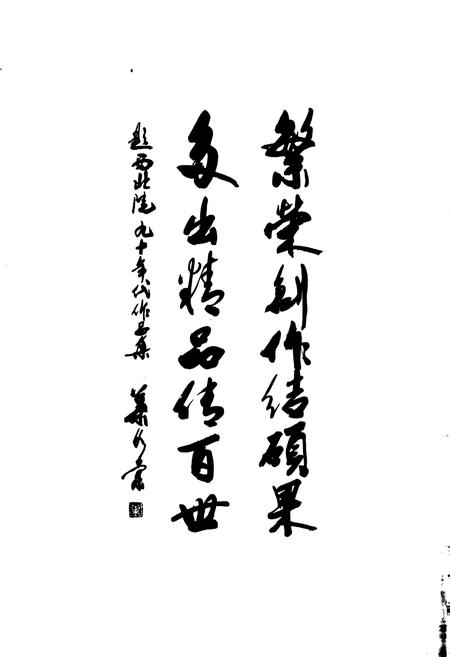 繁荣创作结硕果
多出精品传百世
题西北院九十年代作品集